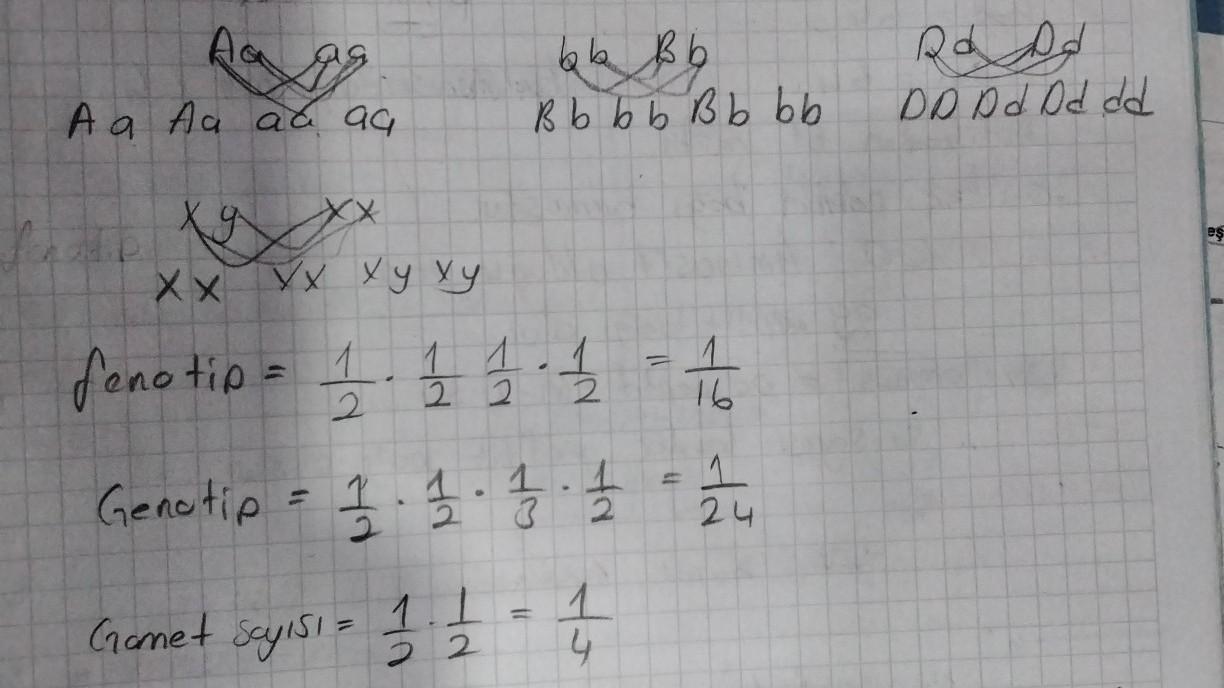 Aa aa bb Bb Dd Dd
Aa Aa aa aa Bb bb Bb bb DD Dd Dd dd
Xy XX
XX XX Xy Xy
fenotip = 1/2 · 1/2 1/2 · 1/2 = 1/16
Genotip = 1/2 · 1/2 · 1/3 · 1/2 = 1/24
Gamet sayısı = 1/2 · 1/2 = 1/4